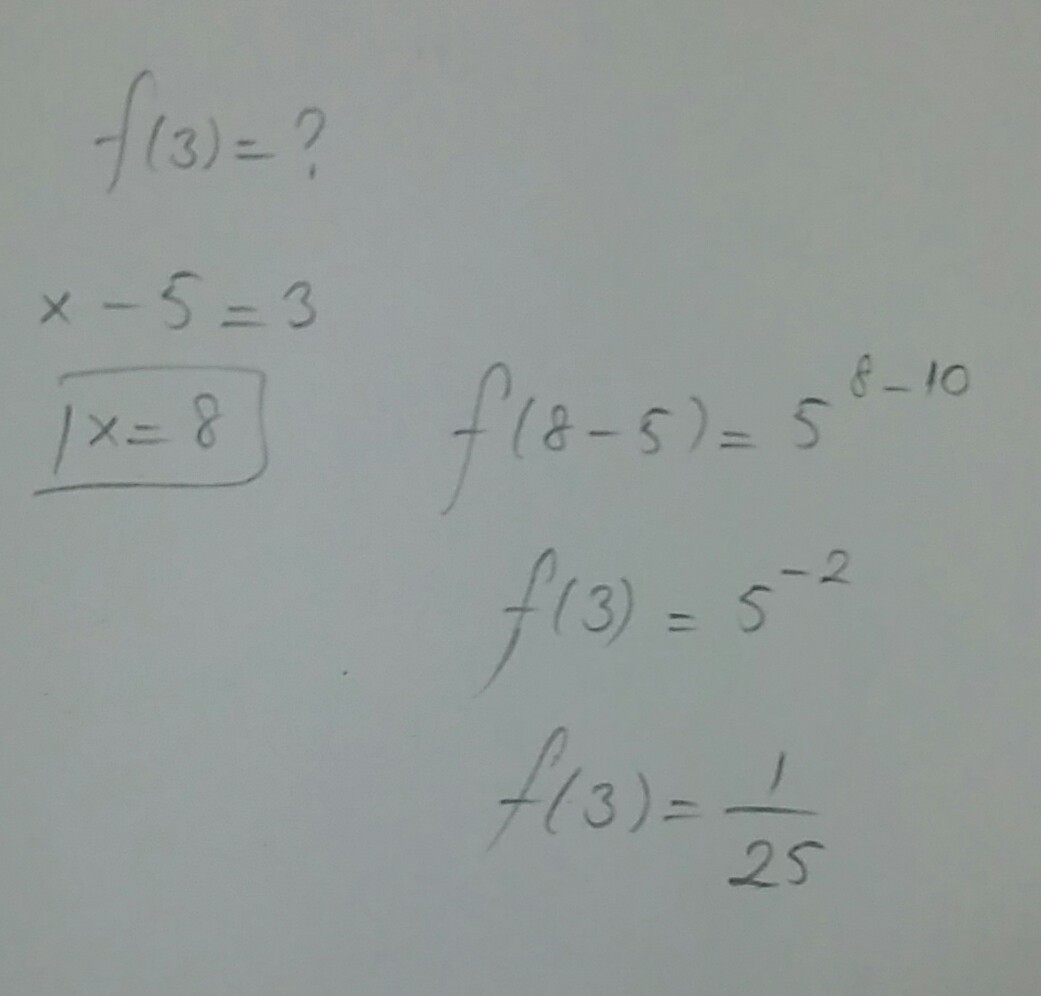 f(3)=?
x-5=3
x=8
f(8-5)=5^{8-10}
f(3)=5^{-2}
f(3)=\frac{1}{25}